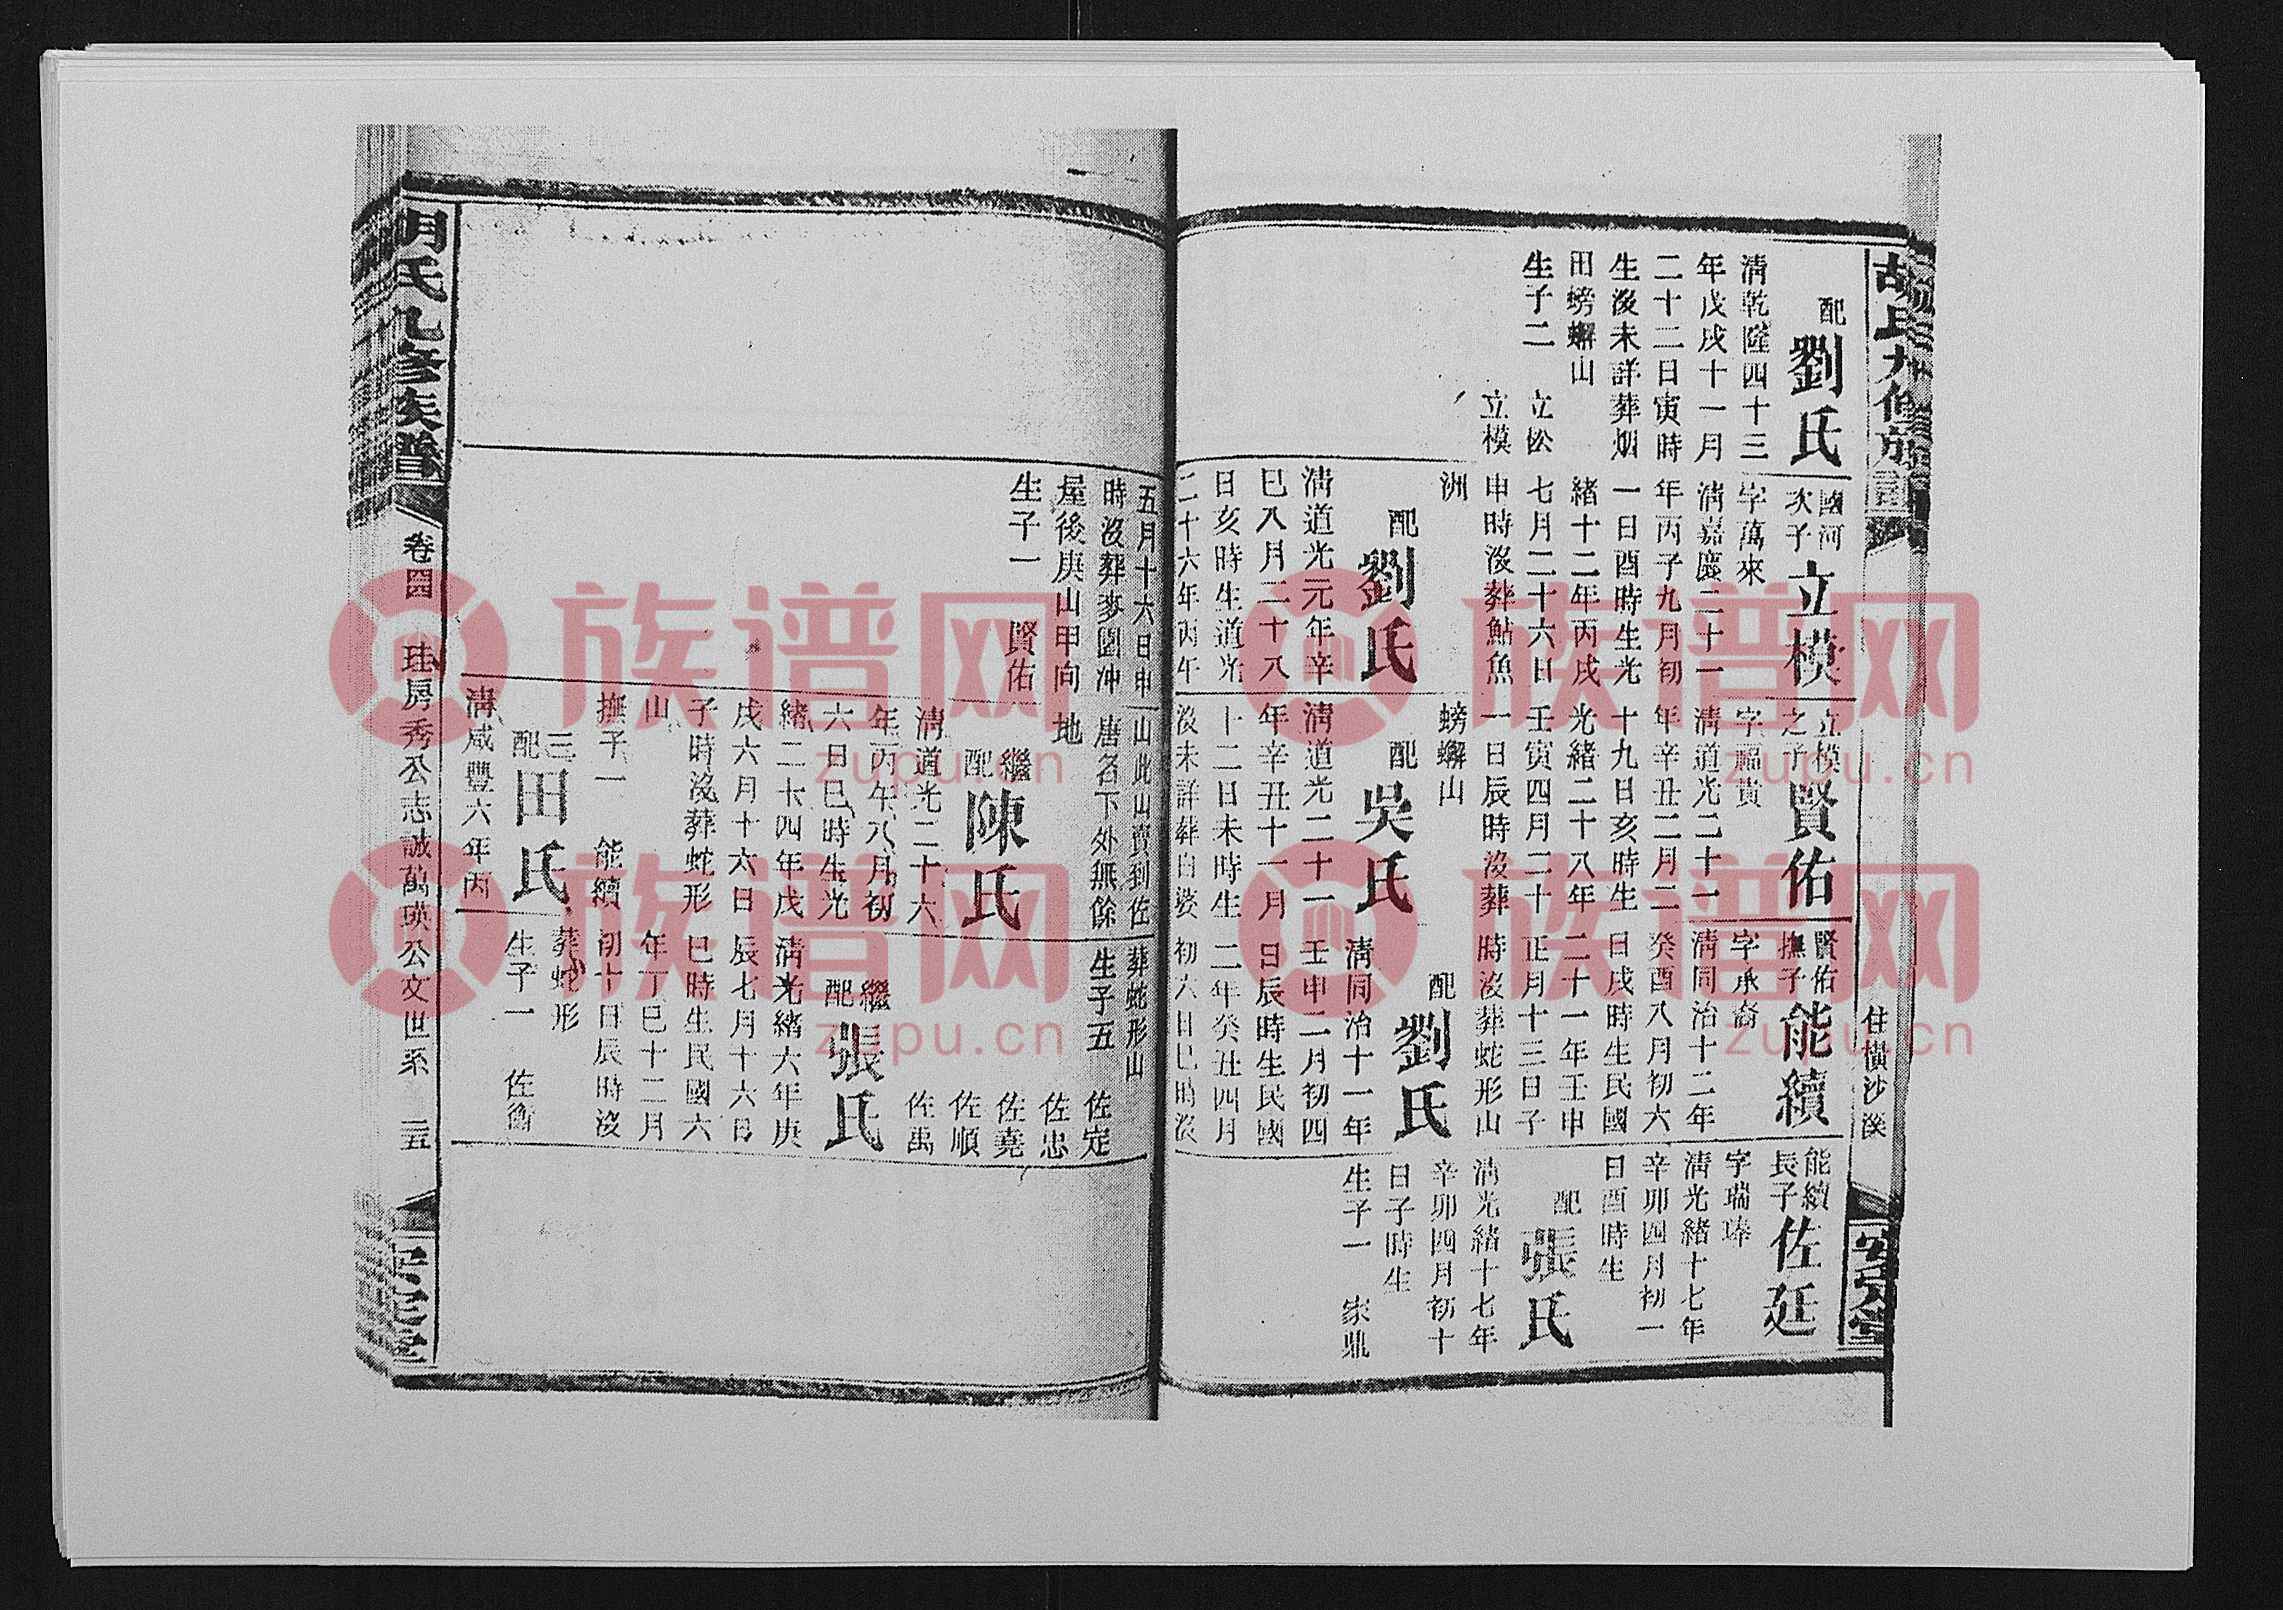 胡氏九修族譜
住橫沙溪
安定堂
配劉氏
清乾隆四十三
年戊戌十一月
二十二日寅時
生沒未詳葬烟
田螃蠏山
生子二 立松
立模
國河
次子
立模
字萬來
清嘉慶二十一
年丙子九月初
一日酉時生光
緒十二年丙戌
七月二十六日
申時沒葬鮎魚
洲
配劉氏
清道光元年辛
巳八月二十八
日亥時生道光
二十六年丙午
五月十六日申
時沒葬麥園冲
屋後庚山甲向
生子一 賢佑
立模
之子
賢佑
字福貴
清道光二十一
年辛丑二月二
十九日亥時生
光緒二十八年
壬寅四月二十
一日辰時沒葬
螃蠏山
配吳氏
清道光二十一
年辛丑十一月
十二日未時生
沒未詳葬白婆
山此山賣到佐
唐名下外無餘
地
繼配陳氏
清道光二十六
年丙午八月初
六日巳時生光
緒二十四年戊
戌六月十六日
子時沒葬蛇形
山
撫子一 能續
三配田氏
清咸豐六年丙
賢佑
撫子
能續
字承裔
清同治十二年
癸酉八月初六
日戌時生民國
二十一年壬申
正月十三日子
時沒葬蛇形山
配劉氏
清同治十一年
壬申二月初四
日辰時生民國
二年癸丑四月
初六日巳時沒
葬蛇形山
生子五 佐定
佐忠
佐堯
佐順
佐禹
繼配張氏
清光緒六年庚
辰七月十六日
巳時生民國六
年丁巳十二月
初十日辰時沒
葬蛇形
生子一 佐衡
能續
長子
佐廷
字瑞
清光緒十七年
辛卯四月初一
日酉時生
配張氏
清光緒十七年
辛卯四月初十
日子時生
生子一 家鼎
胡氏九修族譜
卷四 珪房秀公志誠萬瑛公文世系 二五
安定堂
族谱网
zupu.cn
族谱网
zupu.cn
族谱网
zupu.cn
族谱网
zupu.cn